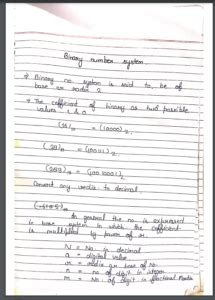 Binary number system
→ Binary no. system is said to be of
base or radix 2
→ The cofficient of binary as two possible
values - 1 & 0
(16)₁₀ = (10000)₂
= (10011)₂
= (100 1001)₂
Convert any radix to decimal
In general the no. is expressed
in base system in which the cofficient
is multiplied by power of r.
N = No. in decimal
a = digital value
r = radix or base of No.
n = no of digit in integer
m = No of digit in fractional